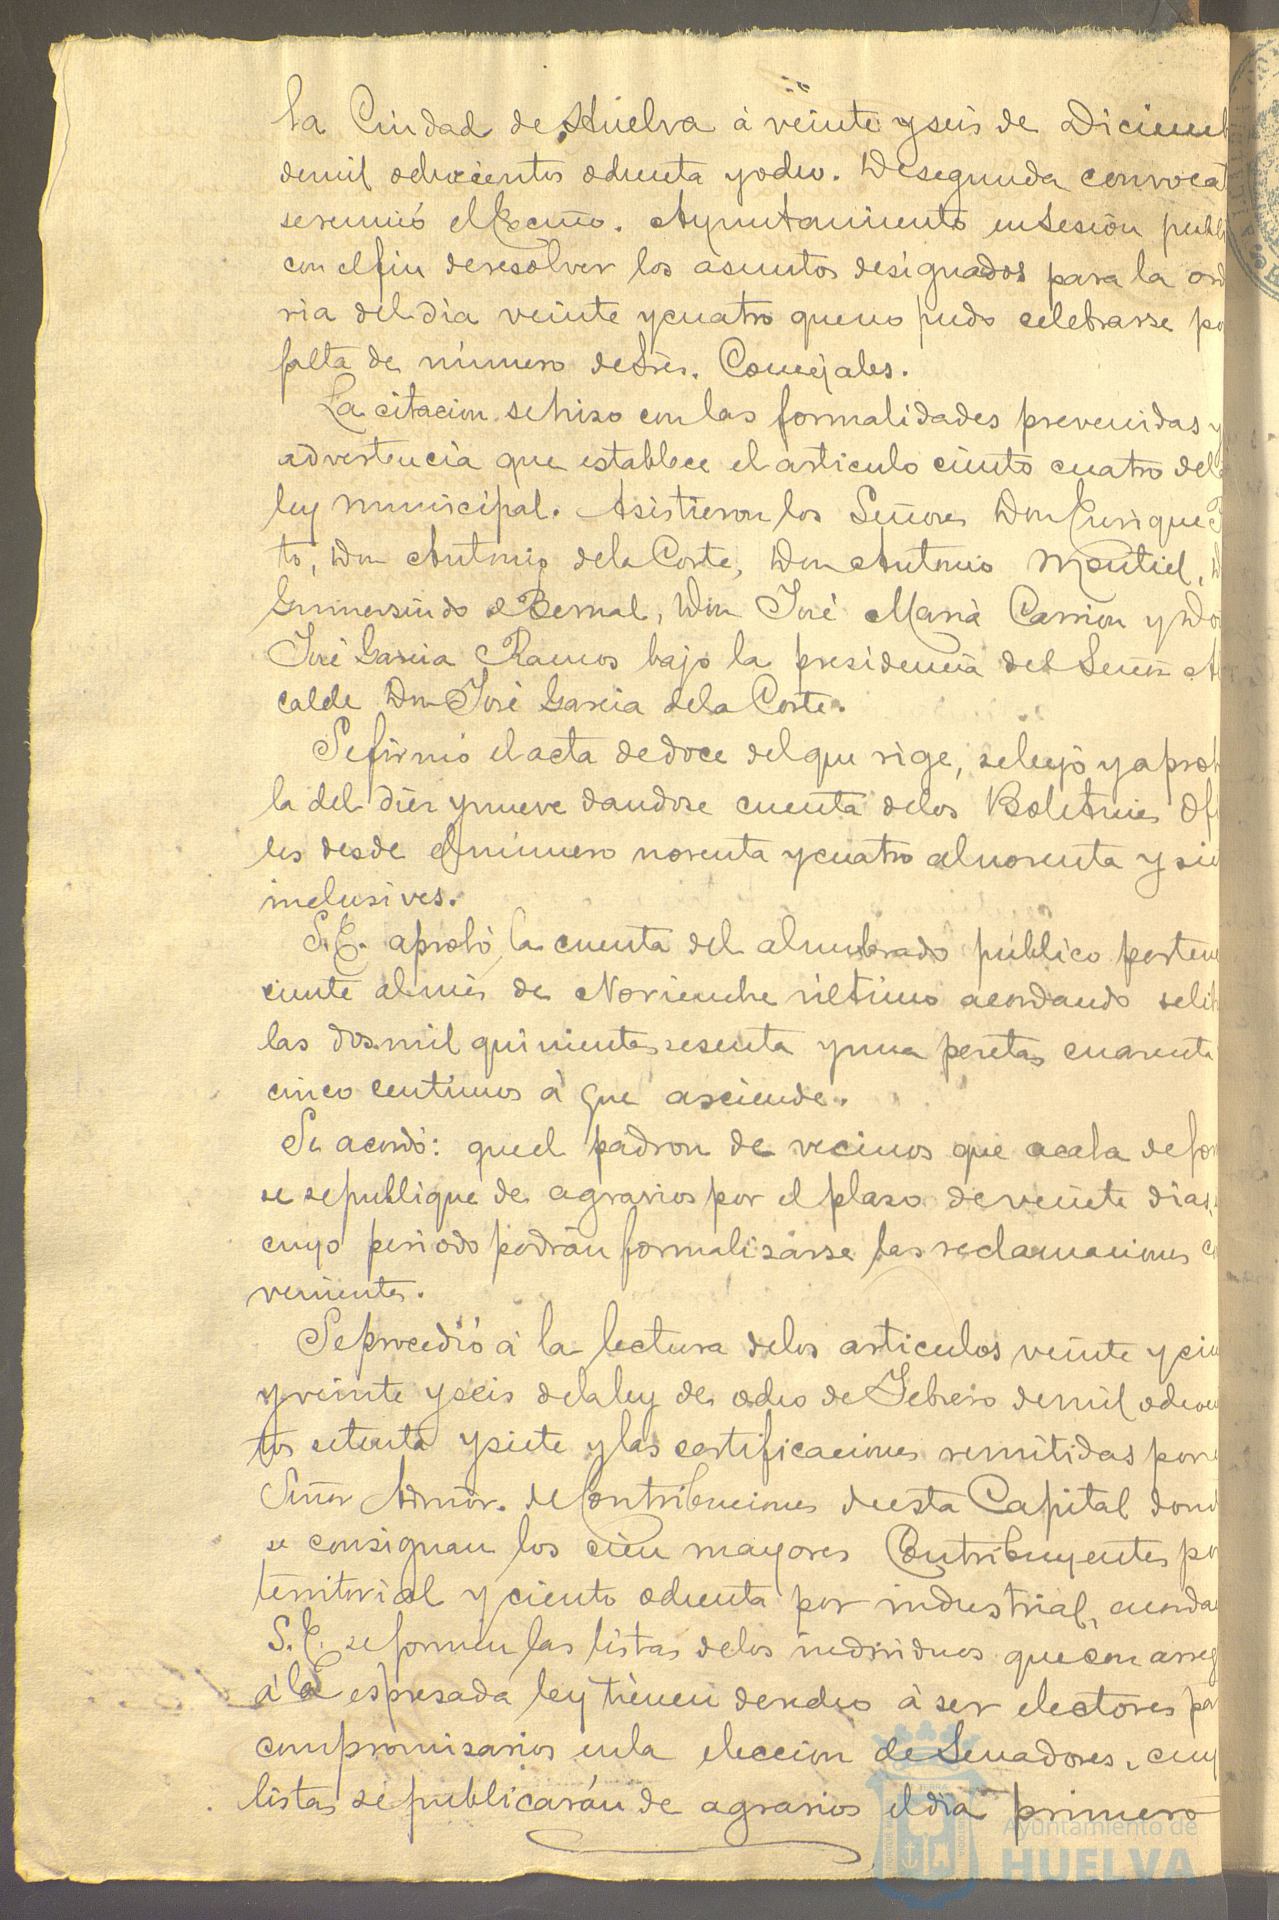 la Ciudad de Huelva á veinte y seis de Diciemb
de mil ochocientos ochenta y ocho. De segunda convocat
se reunió el Excmo. Ayuntamiento en sesión públi
con el fin de resolver los asuntos designados para la ord
ria del dia veinte y cuatro que no pudo celebrarse po
falta de número de Sres. Concejales.
La citacion se hizo con las formalidades prevenidas y
advertencia que establece el articulo ciento cuatro de la
ley municipal. Asistieron los Señores Don Enrique
to, Don Antonio de la Corte, Don Antonio Montiel, D
Gumersindo Bernal, Don José Maria Carrion y Don
José Garcia Ramos bajo la presidencia del Señor Al
calde Don José Garcia de la Corte.
Se firmó el acta de doce del que rige, se leyó y aprob
la del diez y nueve dandose cuenta de los Boletines Ofi
les desde el número noventa y cuatro al noventa y sie
inclusives.
S.E. aprobó la cuenta del alumbrado público pertene
ciente al mes de Noviembre último acordando se lib
las dos mil quinientas sesenta y una pesetas cuarenta
cinco centimos á que asciende.
Se acordó: que el padron de vecinos que acaba de for
se se publique de agrarios por el plazo de veinte dias,
cuyo periodo podrán formalizarse las reclamaciones co
venientes.
Se procedió á la lectura de los articulos veinte y cin
y veinte y seis de la ley de ocho de Febrero de mil ochocien
tos setenta y siete y las certificaciones remitidas por e
Señor Admor. de Contribuciones de esta Capital dond
se consignan los cien mayores Contribuyentes po
territorial y ciento ochenta por industrial, acordan
S.E. se formen las listas de los individuos que con arreg
á la espresada ley tienen derecho á ser electores par
compromisarios en la eleccion de Senadores, cuy
listas se publicarán de agrarios el dia primero
Ayuntamiento de
HUELVA